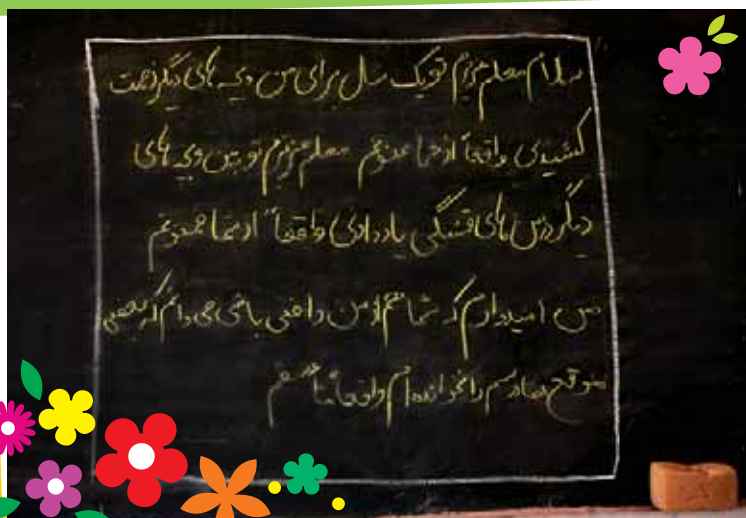 سلام معلم عزیزم تو یک سال برای من و بچه های دیگر زحمت
کشیدی واقعاً از شما ممنونم معلم عزیزم تو به من و بچه های
دیگر درس های قشنگی یاد دادی واقعاً از شما ممنونم
من امیدوارم که شما هم از من راضی باشی می دانم که بعضی
موقع ها درسم را نخوانده ام واقعاً